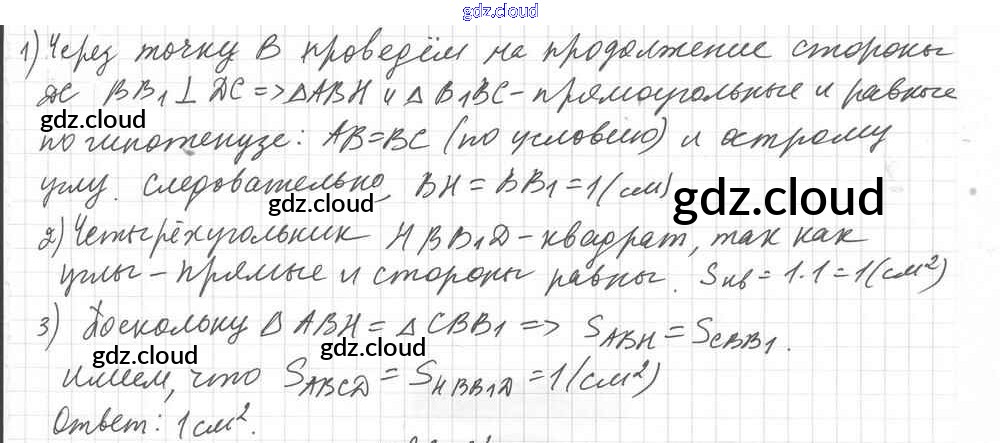 gdz.cloud
1) Через точку B проведём на продолжение стороны
DC BB₁ ⊥ DC => △ABH и △B₁BC - прямоугольные и равные
gdz.cloud
по гипотенузе: AB=BC (по условию) и острому
углу. Следовательно, BH = BB₁ = 1 (см)
gdz.cloud
gdz.cloud
2) Четырёхугольник HBB₁D - квадрат, так как
углы - прямые и стороны равны. Sкв = 1·1 = 1 (см²)
3) Поскольку △ABH = △CBB₁ => S_ABH = S_CBB₁.
gdz.cloud
gdz.cloud
Имеем, что S_ABCD = S_HBB₁D = 1 (см²)
Ответ: 1 см².